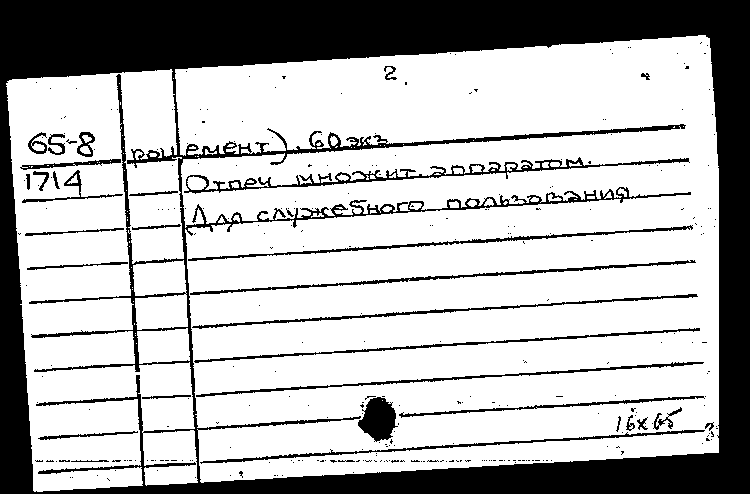 2
65-8 роцемент). 60 экз
1714 Отпеч множит. аппаратом.
Для служебного пользования
16x65
3